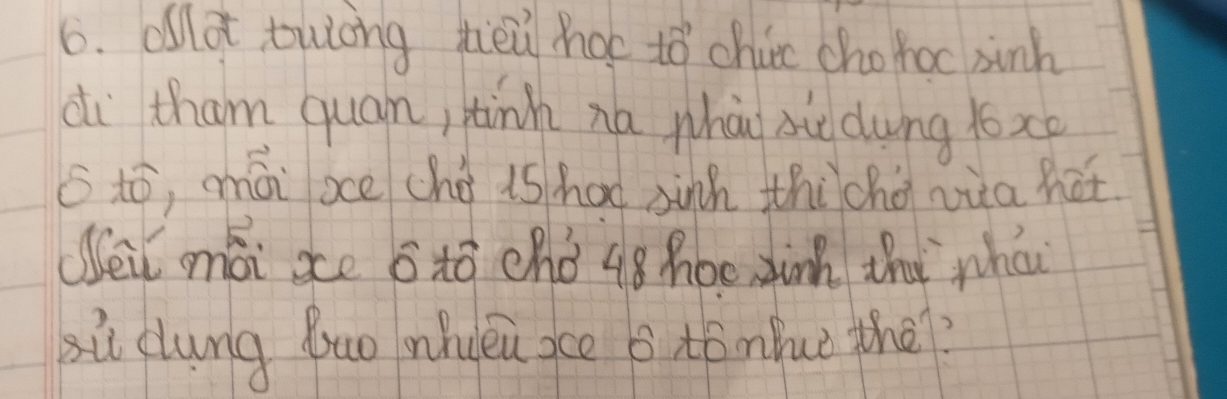 6. Một trường tiểu học tổ chức cho học sinh
đi tham quan, tính ra phải sử dụng 16 xe
ô tô, mỗi xe chở 15 học sinh thì chở vừa hết.
Nếu mỗi xe ô tô chở 48 học sinh thì phải
sử dụng bao nhiêu xe ô tô như thế?